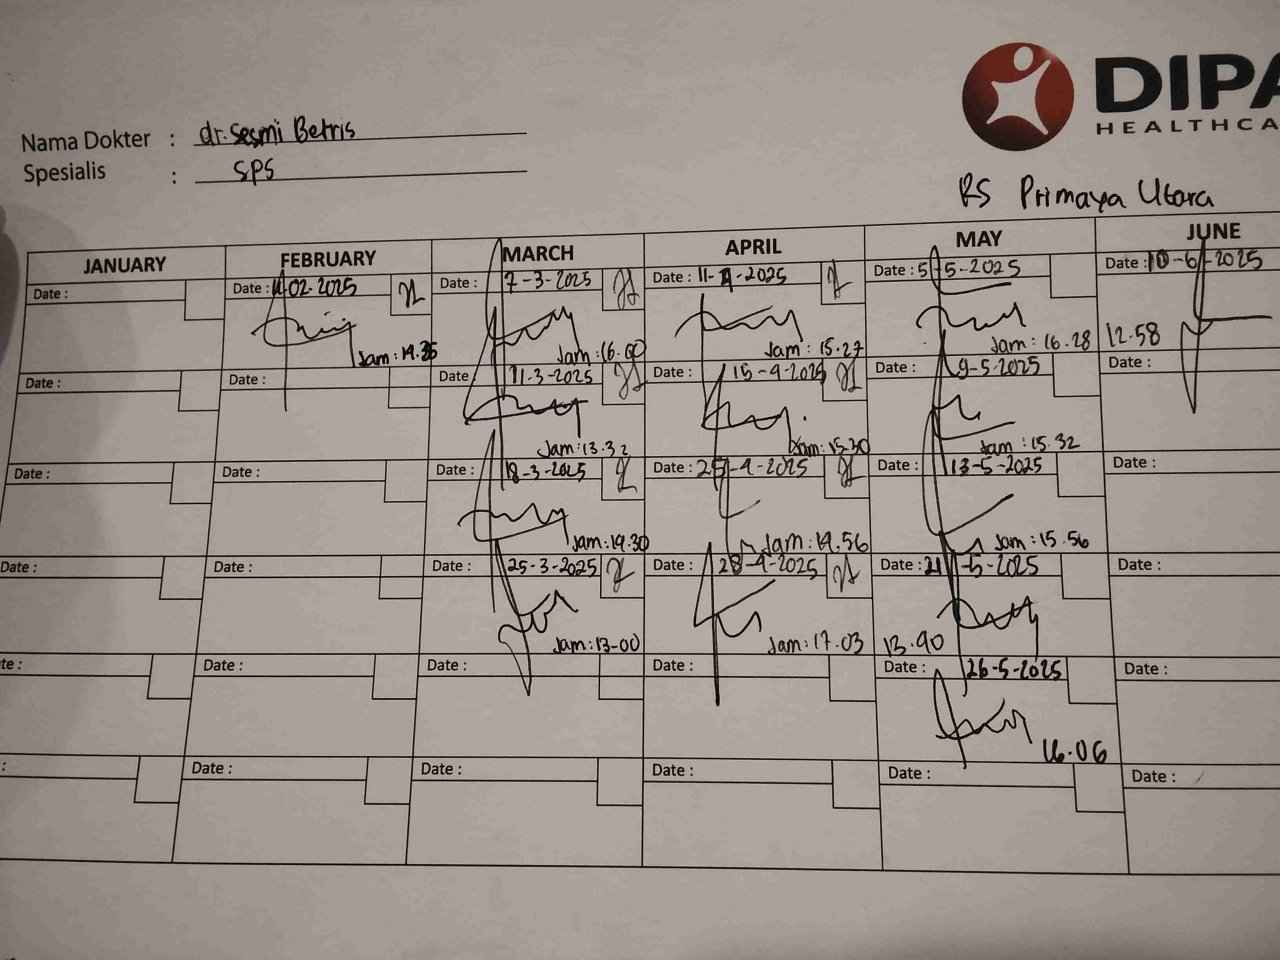 DIPA
HEALTHCA
Nama Dokter : dr. Sesmi Betris
Spesialis : SPS
RS Primaya Utara
JANUARY FEBRUARY MARCH APRIL MAY JUNE
Date : Date : 02-2025 Date : 7-3-2025 Date : 11-4-2025 Date : 5-5-2025 Date : 10-6-2025
Jam : 14.35 Jam : 16.00 Jam : 15.27 Jam : 16.28 12.58
Date : Date : Date 11-3-2025 Date : 15-4-2025 Date : 9-5-2025 Date :
Jam : 13.32 Jam : 15.30 Jam : 15.32
Date : Date : Date : 18-3-2025 Date : 25-4-2025 Date : 13-5-2025 Date :
Jam : 14.30 Jam : 14.56 Jam : 15.56
Date : Date : Date : 25-3-2025 Date : 28-4-2025 Date : 21-5-2025 Date :
Jam : 13-00 Jam : 17.03 13.40
te : Date : Date : Date : Date : 26-5-2025 Date :
16.06
: Date : Date : Date : Date : Date :